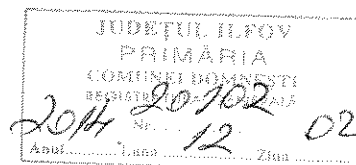 JUDEŢUL ILFOV
PRIMĂRIA
COMUNEI DOMNEŞTI
REGISTRATURA GENERALĂ
Nr. 20102
Anul 2014 Luna 12 Ziua 02